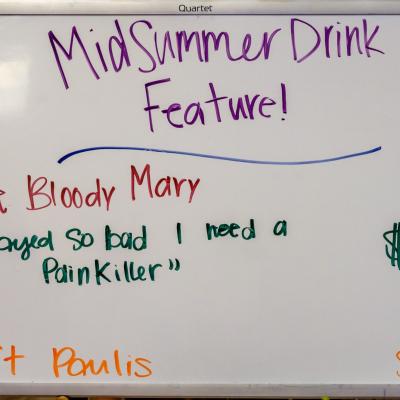 Quartet
MidSummer Drink
Feature!
Bloody Mary
so bad I need a $
Painkiller"
Paulis